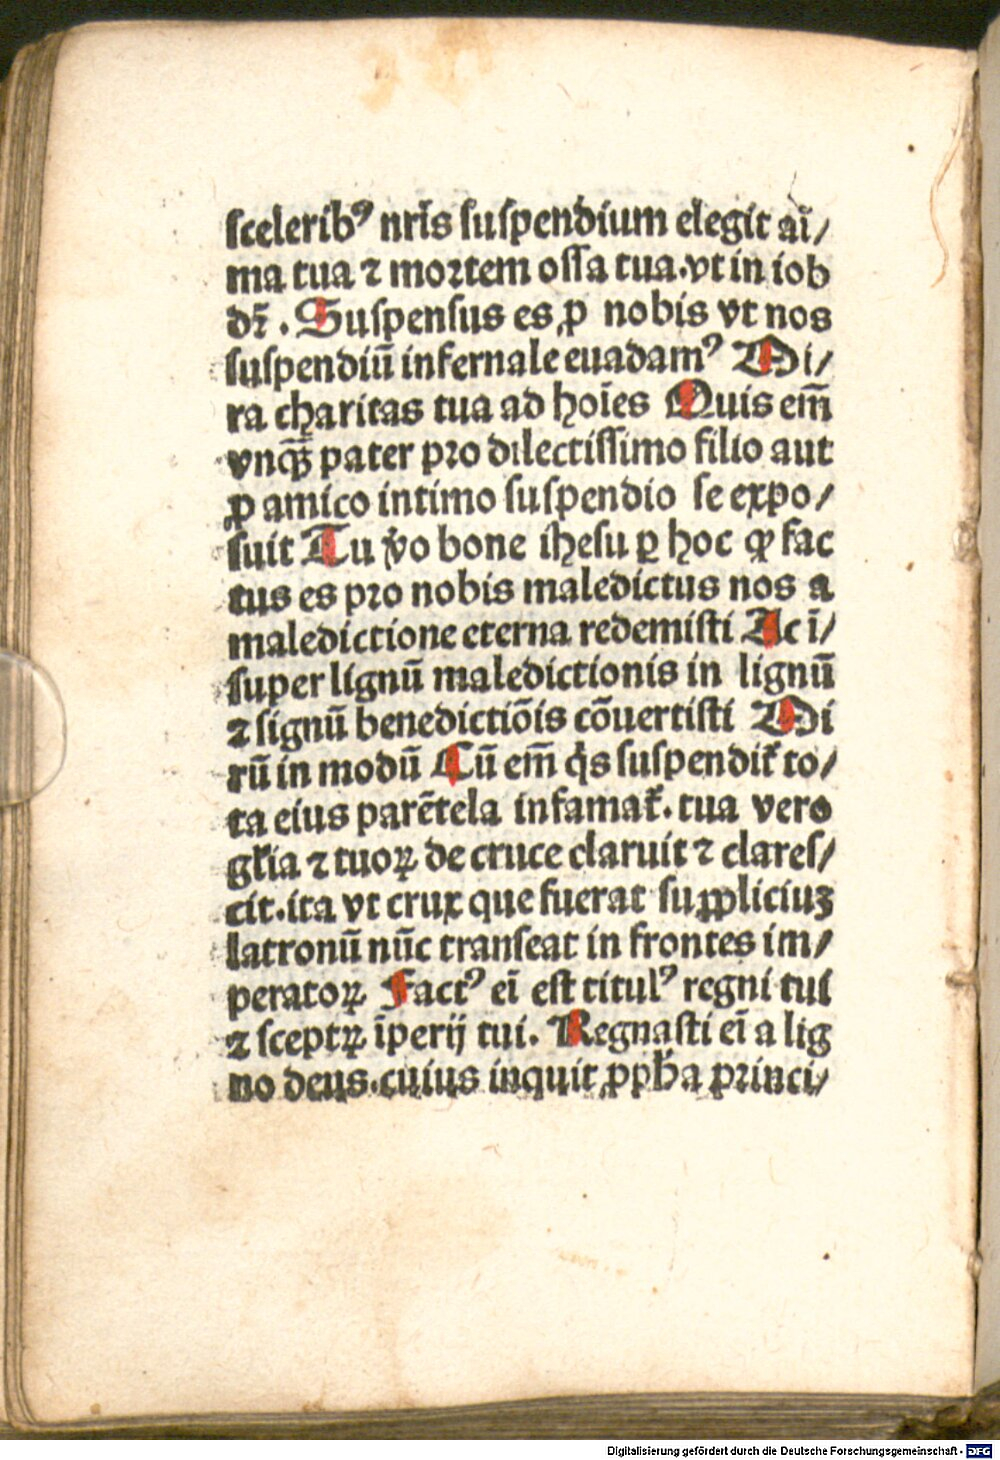 scelerib⁹ nr̄is suspendium elegit aī/
ma tua ⁊ mortem ossa tua.vt in iob
dr̄. Suspensus es ꝓ nobis vt nos
suspendiū infernale euadam⁹ Mi/
ra charitas tua ad hoīes Quis em̄
vnq̄ꝫ pater pro dilectissimo filio aut
ꝓ amico intimo suspendio se expo/
suit Tu v̓o bone ihesu ꝑ hoc ꝙ fac
tus es pro nobis maledictus nos a
maledictione eterna redemisti Ac ī/
super lignū maledictionis in lignū
⁊ signū benedictiōis cōuertisti Mi
rū in modū Cū em̄ q̓s suspendit᷑ to/
ta eius parētela infamat᷑. tua vero
gl̓ia ⁊ tuoꝝ de cruce claruit ⁊ claref/
cit.ita vt crux que fuerat suppliciuꝫ
latronū nūc transeat in frontes im/
peratoꝝ Fact⁹ eī est titul⁹ regni tui
⁊ sceptꝝ īperij tui. Regnasti eī a lig
no deus.cuius inquit ꝓpħa princi/
Digitalisierung gefördert durch die Deutsche Forschungsgemeinschaft - DFG